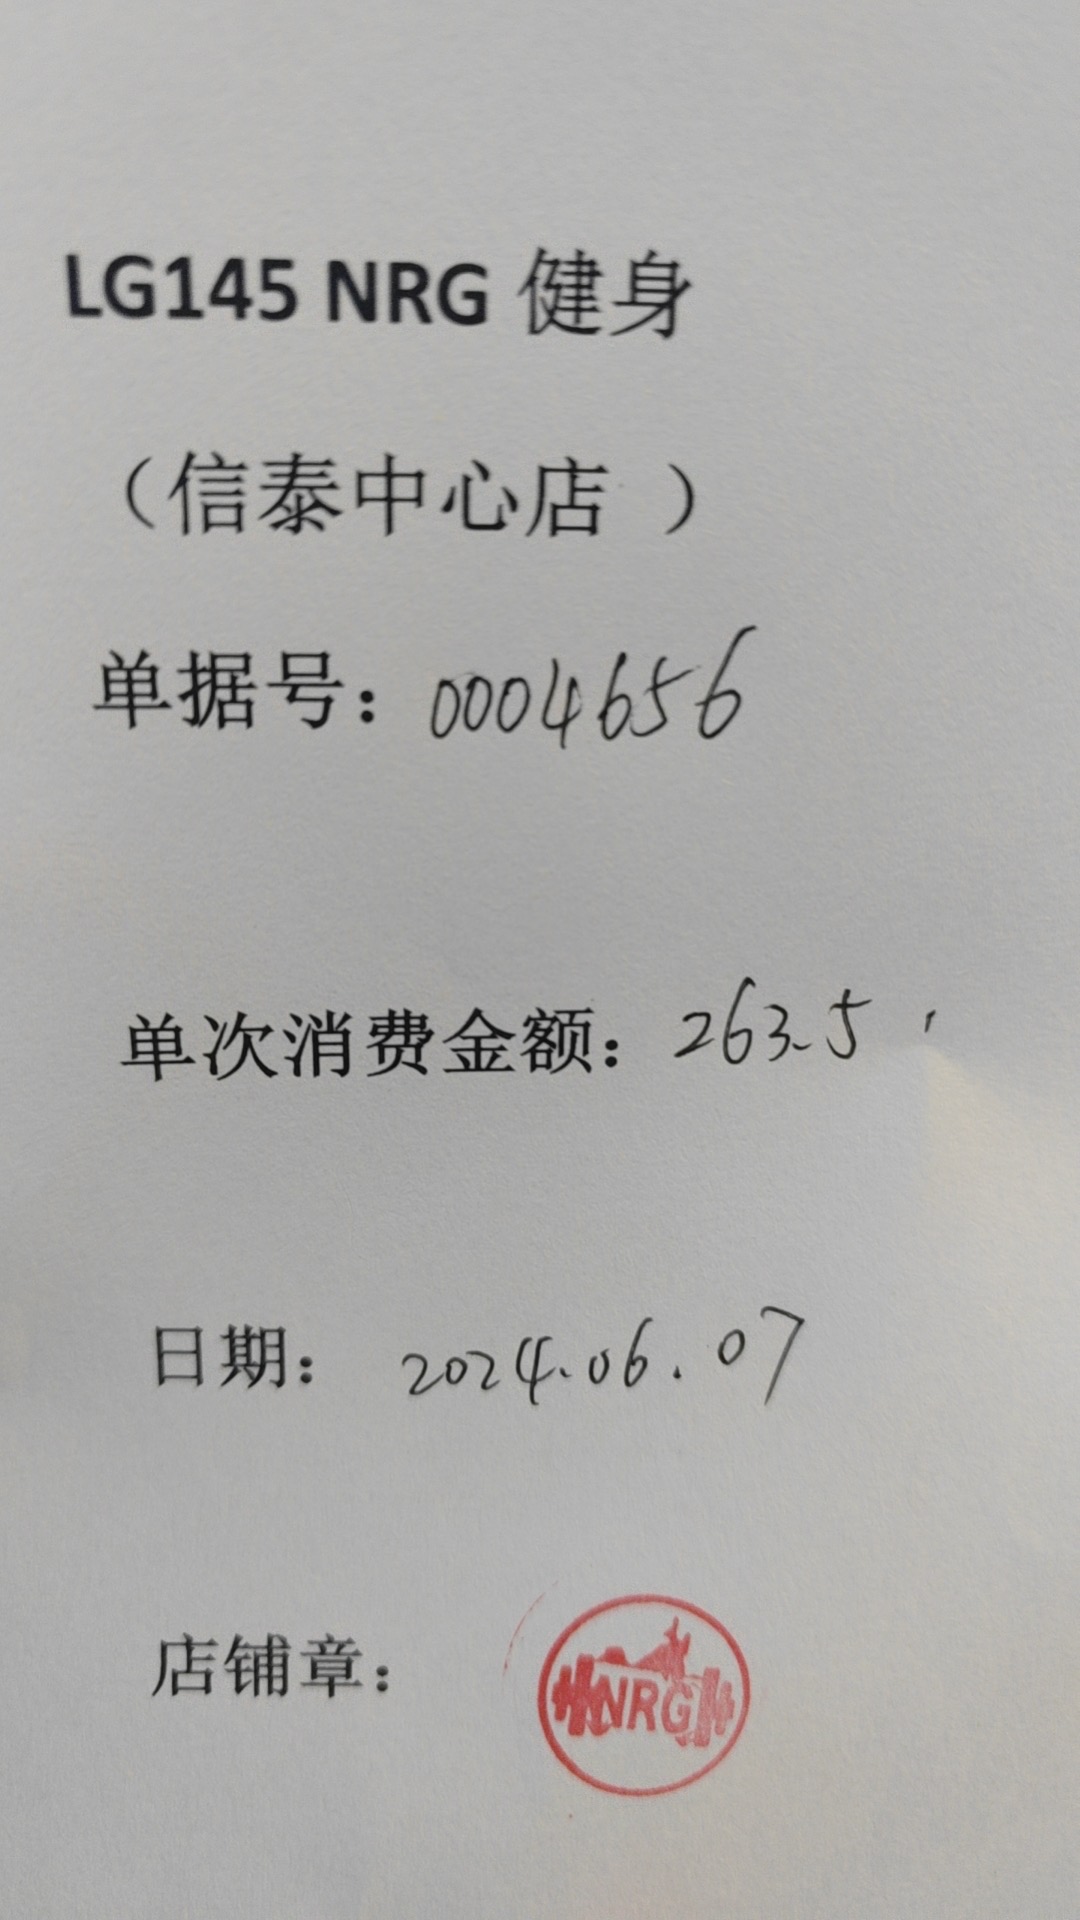 LG145 NRG 健身
（信泰中心店 ）
单据号：0004656
单次消费金额：263.5
日期：2024.06.07
店铺章：
NRG